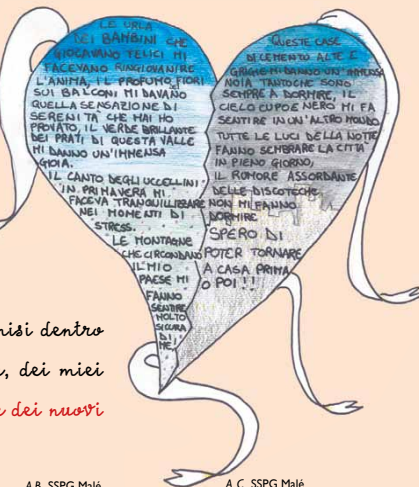 LE URLA
DEI BAMBINI CHE
GIOCAVANO FELICI MI
FACEVANO RINGIOVANIRE
L'ANIMA, IL PROFUMO FIORI
SUI BALCONI MI DAVANO
QUELLA SENSAZIONE DI
SERENITA' CHE MAI HO
PROVATO, IL VERDE BRILLANTE
DEI PRATI DI QUESTA VALLE
MI DANNO UN'IMMENSA
GIOIA.
IL CANTO DEGLI UCCELLINI
IN PRIMAVERA MI
FACEVA TRANQUILLIZZARE
NEI MOMENTI DI
STRESS.
LE MONTAGNE
CHE CIRCONDANO
IL MIO
PAESE MI
FANNO
SENTIRE
MOLTO
SICURA
DI
ME.
QUESTE CASE
DI CEMENTO ALTE E
GRIGIE MI DANNO UN'IMMENSA
NOIA TANTO CHE SONO
SEMPRE A DORMIRE, IL
CIELO CUPO E NERO MI FA
SENTIRE IN UN'ALTRO MONDO.
TUTTE LE LUCI DELLA NOTTE
FANNO SEMBRARE LA CITTA'
IN PIENO GIORNO,
IL RUMORE ASSORDANTE
DELLE DISCOTECHE
NON MI FANNO
DORMIRE
SPERO DI
POTER TORNARE
A CASA PRIMA
O POI!!
misi dentro
, dei miei
dei nuovi
A.B. SSPG Malé
A.C. SSPG Malé